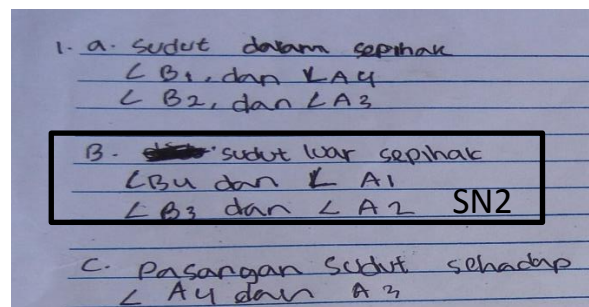 1. a. sudut dalam sepihak
∠B1, dan ∠A4
∠B2, dan ∠A3
B. sudut luar sepihak
∠B4 dan ∠A1
∠B3 dan ∠A2 SN2
C. Pasangan sudut sehadap
∠A4 dan A3